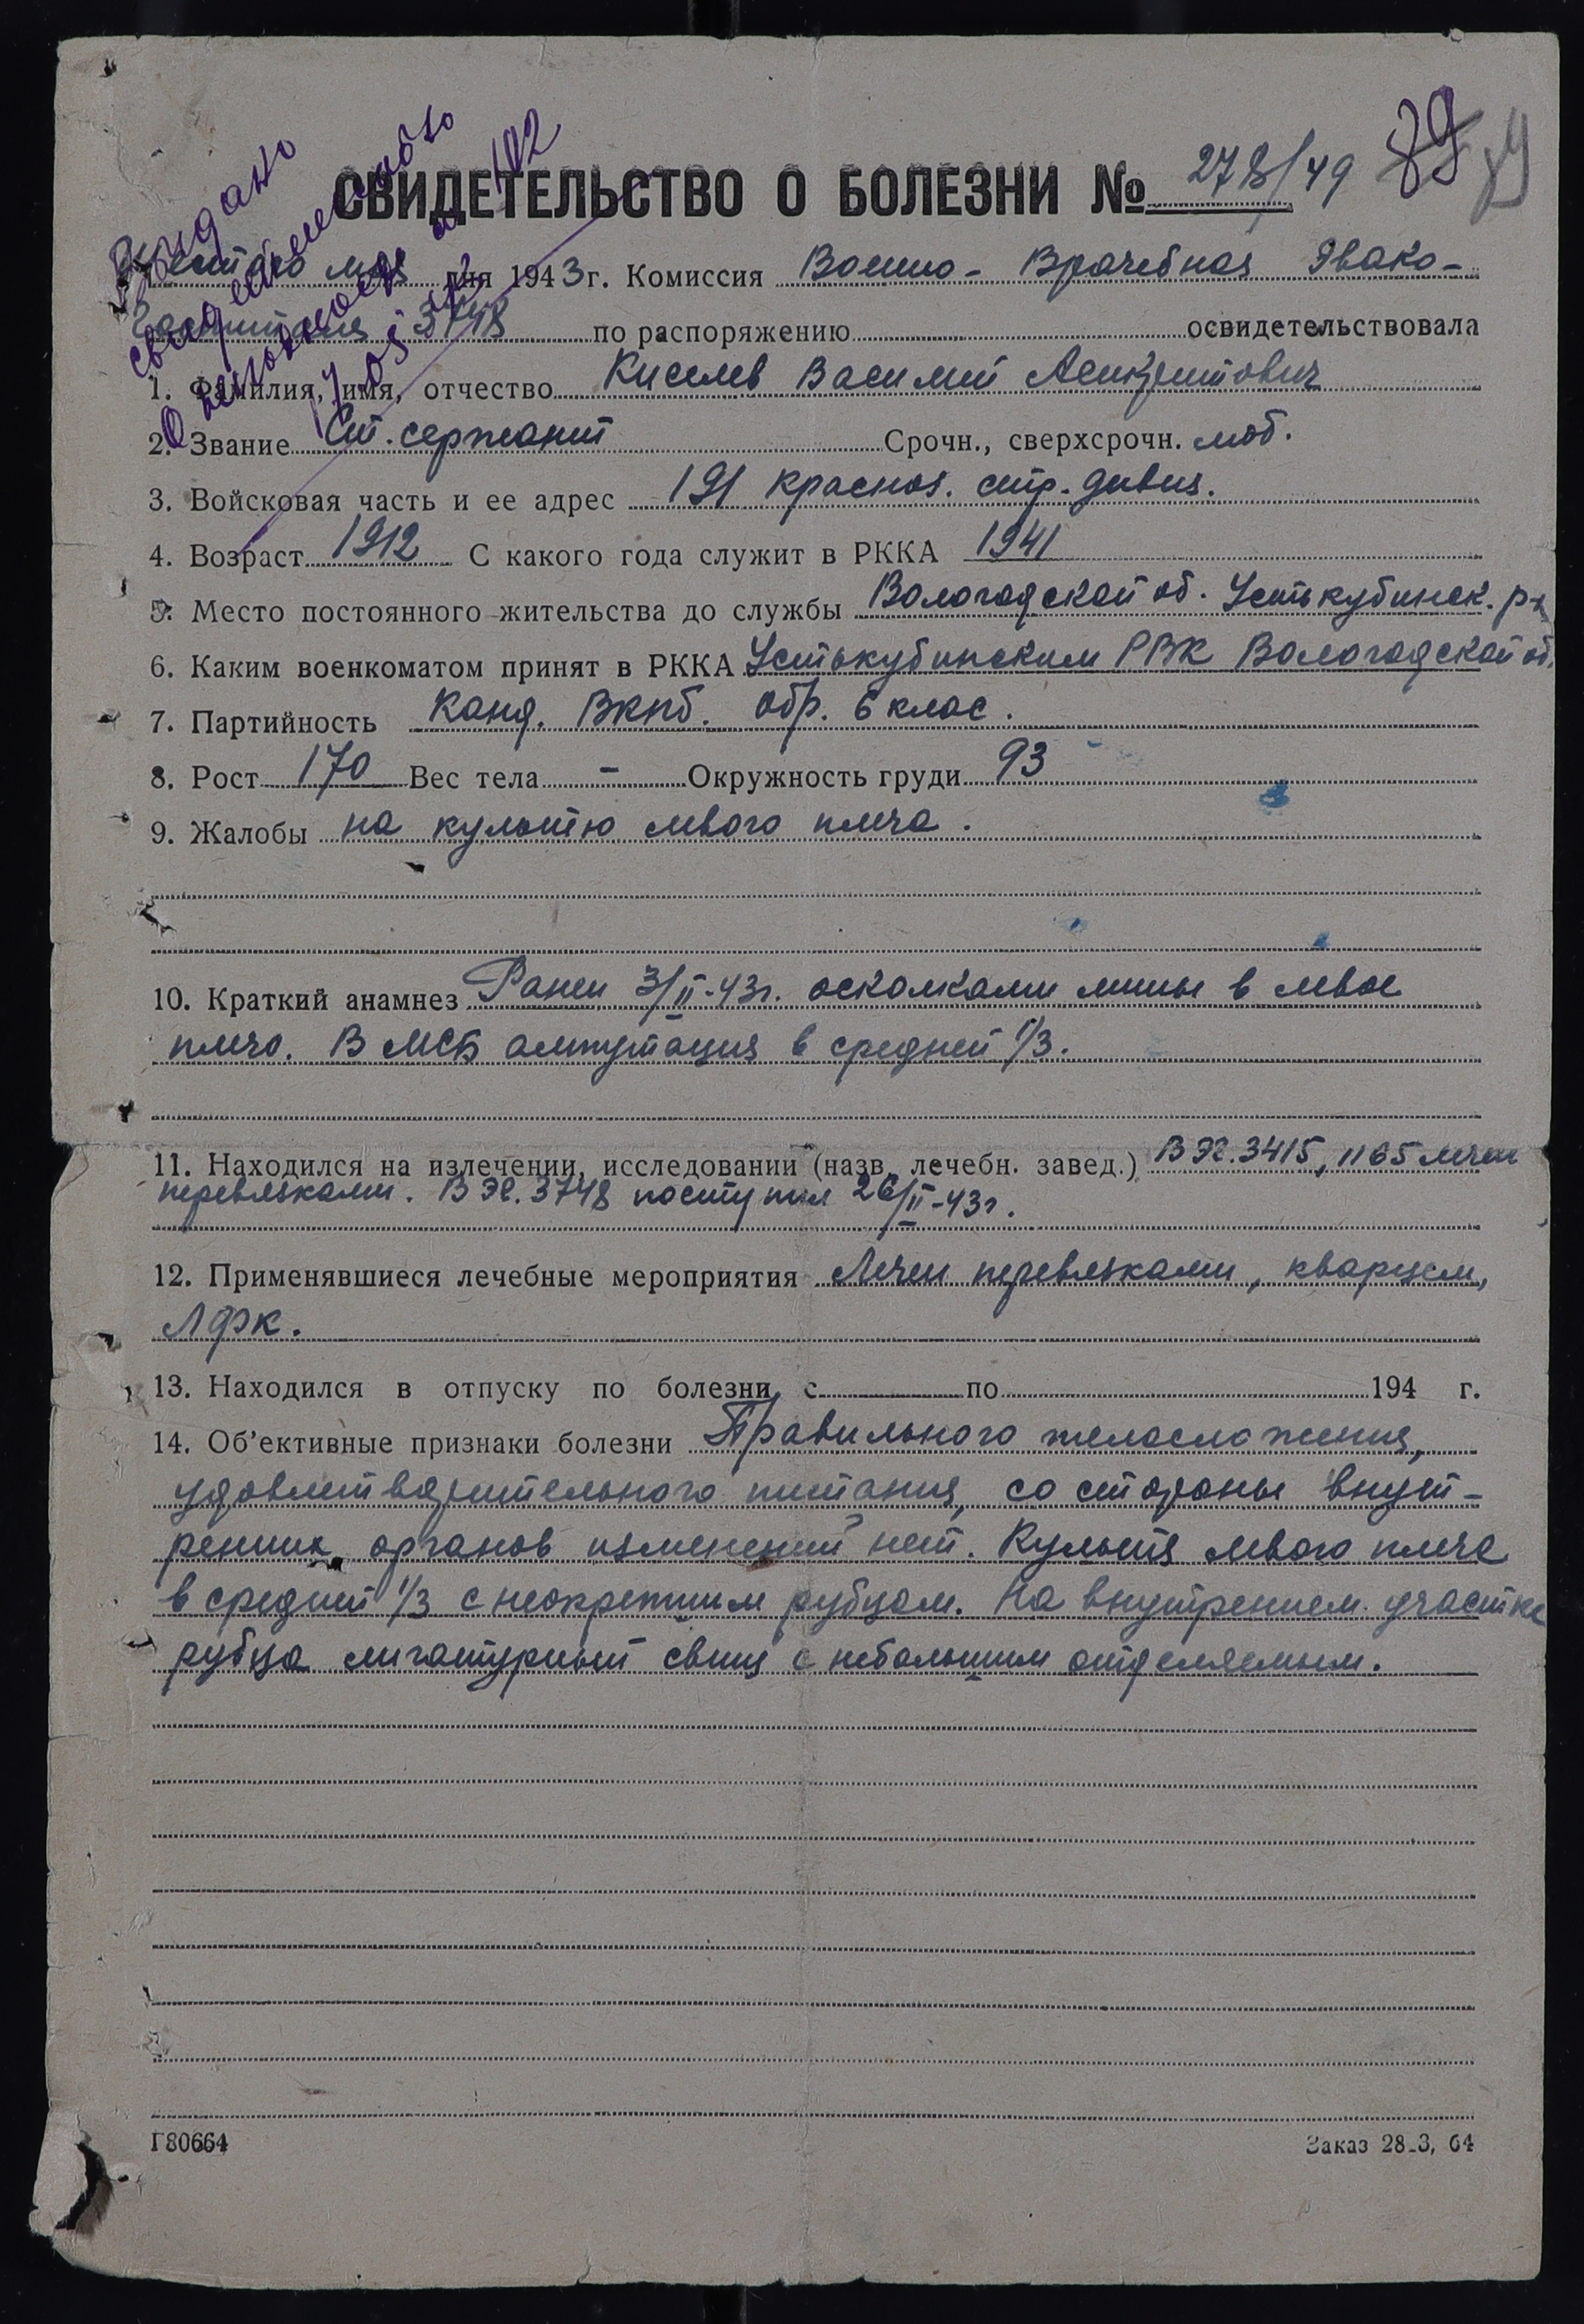 Выдано
свидетельство
о болезни № 102
СВИДЕТЕЛЬСТВО О БОЛЕЗНИ № 278/49 89
Шестого мая дня 1943 г. Комиссия Военно-Врачебная Эвако-
Госпиталя 3748 по распоряжению освидетельствовала
1. Фамилия, имя, отчество Киселев Василий
2. Звание Ст. сержант Срочн., сверхсрочн. моб.
3. Войсковая часть и ее адрес 191 красноз. стр. дивиз.
4. Возраст 1912 С какого года служит в РККА 1941
5. Место постоянного жительства до службы Вологодской об. Устькубинск. р-н
6. Каким военкоматом принят в РККА Устькубинским РВК Вологодской об.
7. Партийность Канд. ВКПб. обр. 6 клас.
8. Рост 170 Вес тела - Окружность груди 93
9. Жалобы на культю левого плеча.
10. Краткий анамнез Ранен 3/II-43г. осколками мины в левое
плечо. В МСБ ампутация в средней 1/3.
11. Находился на излечении, исследовании (назв. лечебн. завед.) В ЭГ. 3415, 1165 лечен
перевязками. В ЭГ. 3748 поступил 26/II-43г.
12. Применявшиеся лечебные мероприятия Лечен перевязками, кварцем,
ЛФК.
13. Находился в отпуску по болезни с по 194 г.
14. Об'ективные признаки болезни Правильного телосложения,
удовлетворительного питания, со стороны внутт-
ренних органов изменений нет. Культя левого плеча
в средней 1/3 с неокрепшим рубцом. На внутреннем участке
рубца лигатурный свищ с небольшим отделяемым.
Г80664 Заказ 28_3, 64